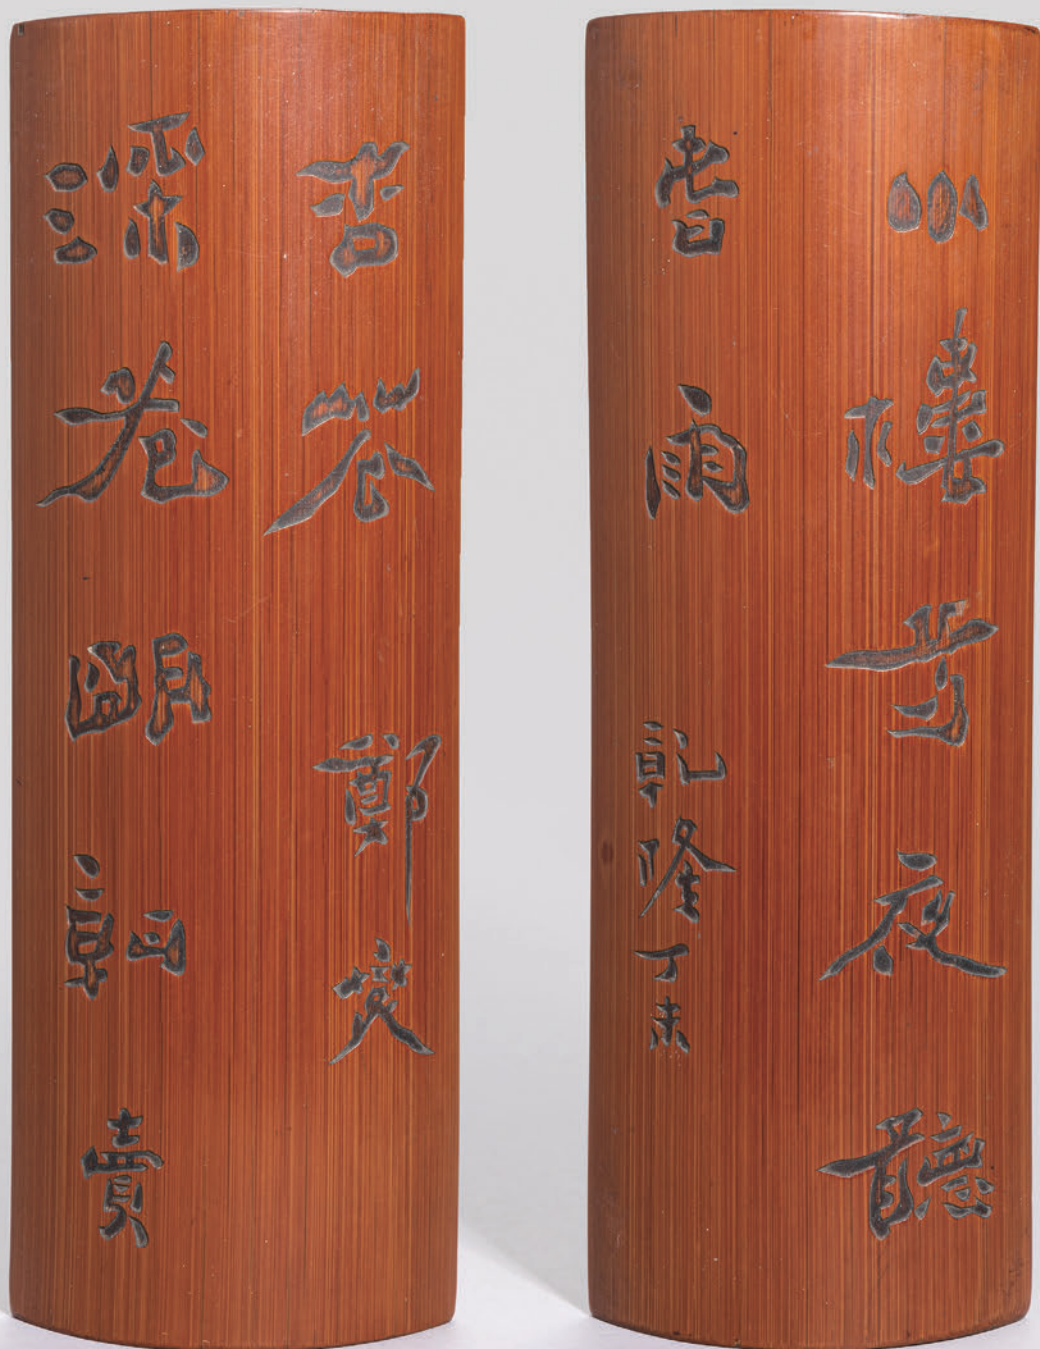 小樓夜聽
春雨
乾隆丁未
深巷朙朝賣
杏花
鄭燮